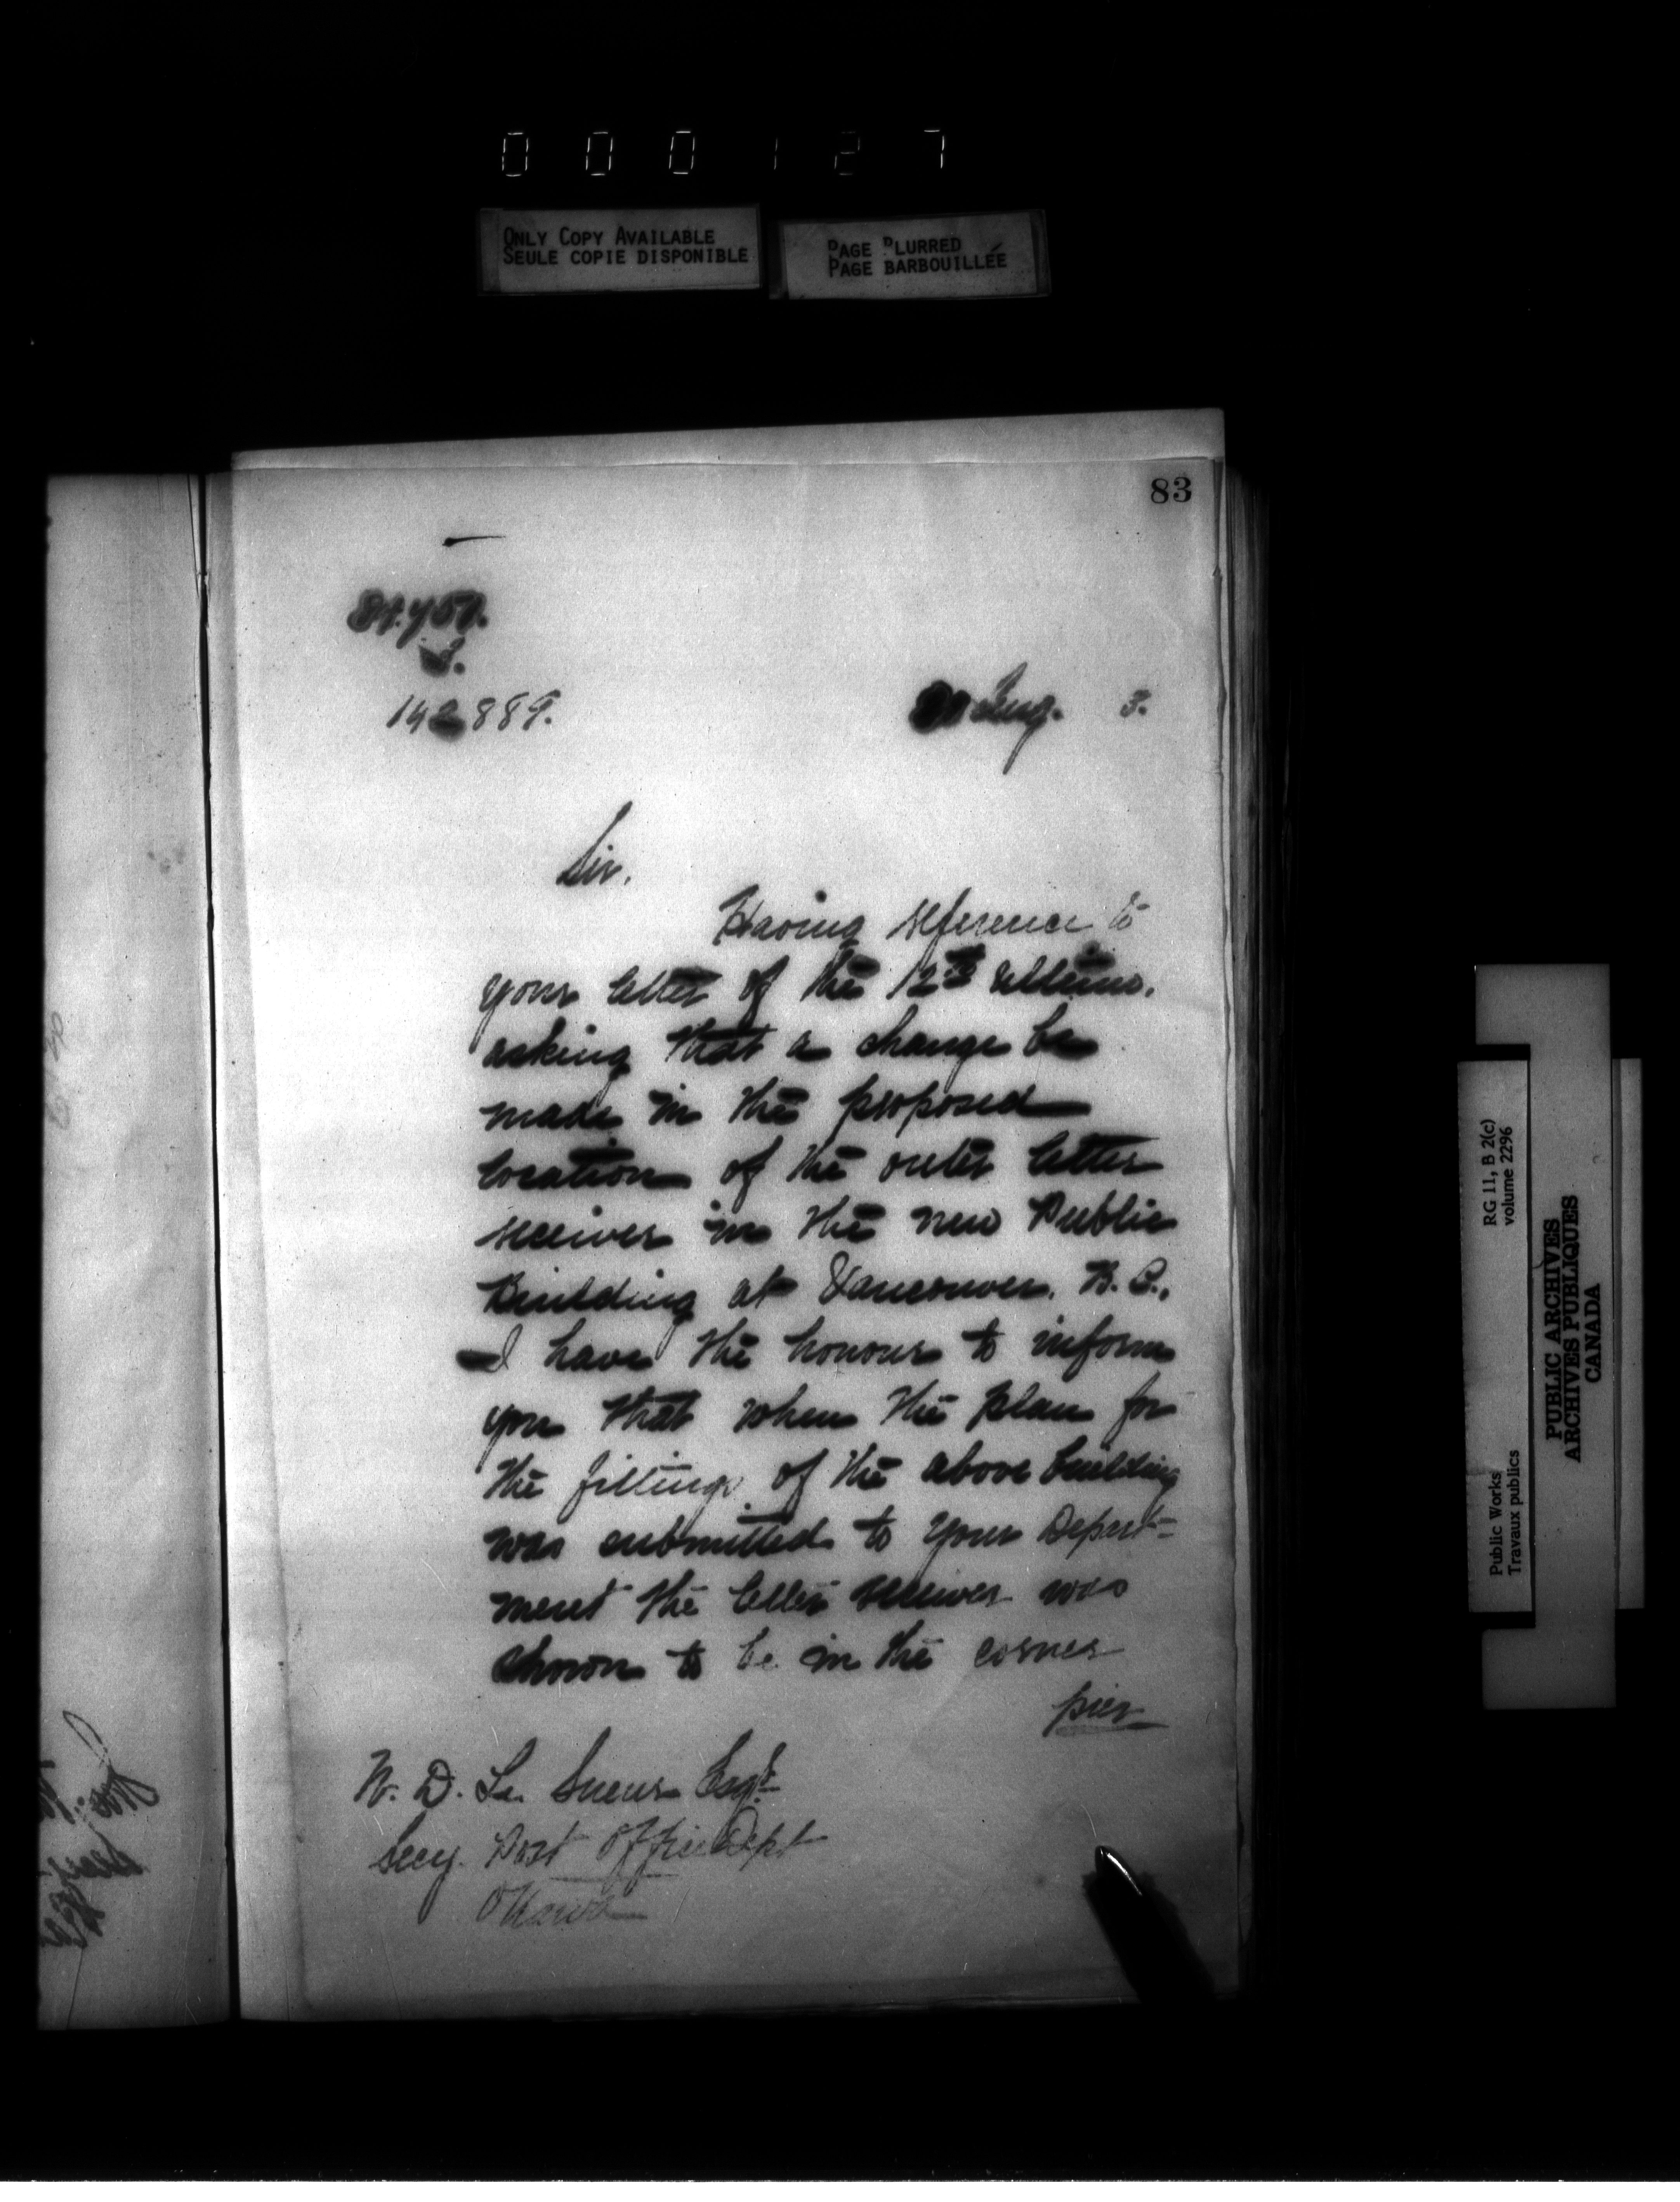 000127
ONLY COPY AVAILABLE
SEULE COPIE DISPONIBLE
PAGE BLURRED
PAGE BARBOUILLÉE
83
Aug. 3.
Sir,
Having reference to
your letter of the 12th ultimo,
asking that a change be
made in the proposed
location of the outer letter
receiver in the new Public
Building at Vancouver, B.C.,
I have the honour to inform
you that when the plan for
the fittings of the above building
was submitted to your Depart=
ment the letter receiver was
shown to be in the corner
pier
W. D. Le Sueur Esqr.
Secy. Post Office Dept
Ottawa
Public Works
Travaux publics
RG 11, B 2(c)
volume 2296
PUBLIC ARCHIVES
ARCHIVES PUBLIQUES
CANADA